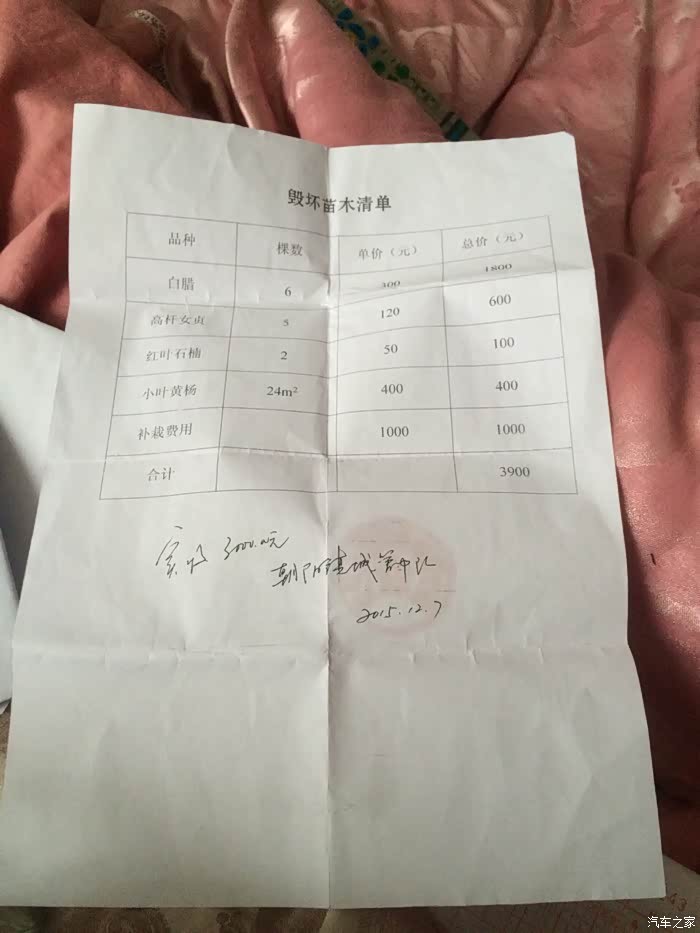 毁坏苗木清单
品种 棵数 单价（元） 总价（元）
白腊 6 300 1800
高杆女贞 5 120 600
红叶石楠 2 50 100
小叶黄杨 24m² 400 400
补栽费用 1000 1000
合计 3900
实收 3000.00元
朝阳镇城管中队
2015.12.7
汽车之家